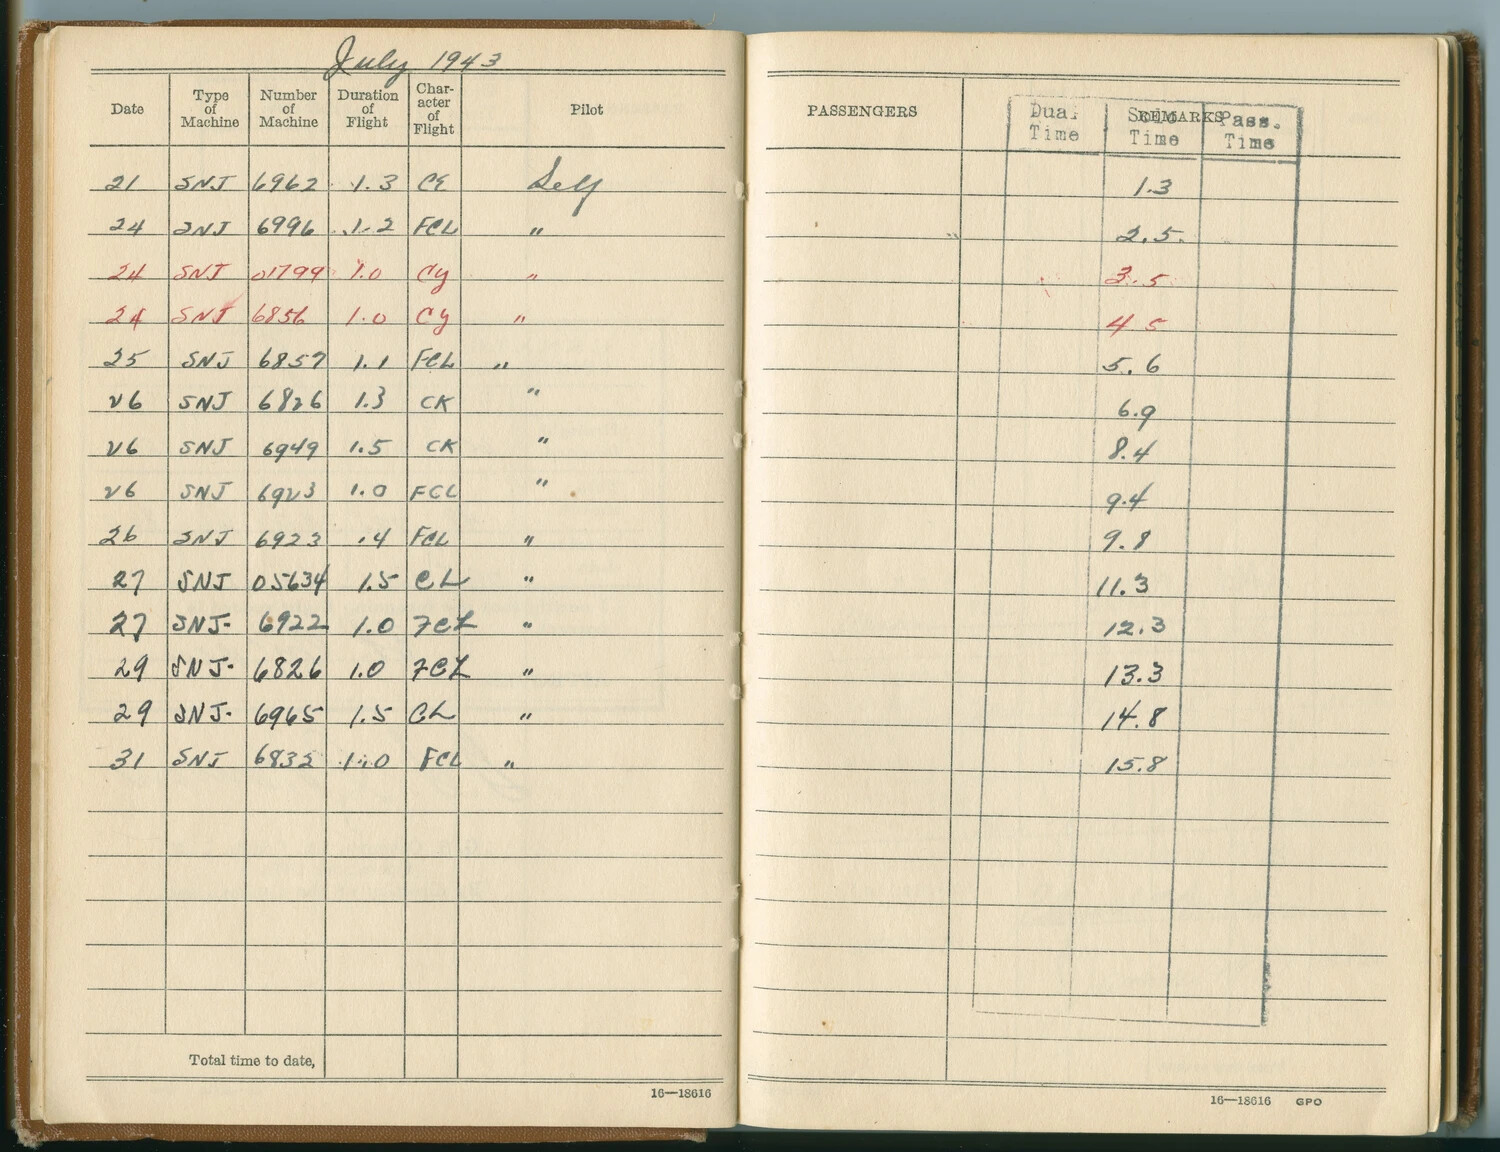 July 1943
Date Type of Machine Number of Machine Duration of Flight Char-acter of Flight Pilot PASSENGERS REMARKS
Dual Time Solo Time Pass. Time
21 SNJ 6962 1.3 CE Self 1.3
24 SNJ 6996 1.2 FCL " 2.5
24 SNJ 01799 1.0 Cy " 3.5
24 SNJ 6856 1.0 Cy " 4 5
25 SNJ 6857 1.1 FCL " 5.6
26 SNJ 6826 1.3 CK " 6.9
26 SNJ 6949 1.5 CK " 8.4
26 SNJ 6923 1.0 FCL " 9.4
26 SNJ 6923 .4 FCL " 9.8
27 SNJ 05634 1.5 CL " 11.3
27 SNJ- 6922 1.0 FCL " 12.3
29 SNJ- 6826 1.0 FCL " 13.3
29 SNJ- 6965 1.5 CL " 14.8
31 SNJ 6832 1.0 FCL " 15.8
Total time to date,
16—18616
16—18616 GPO